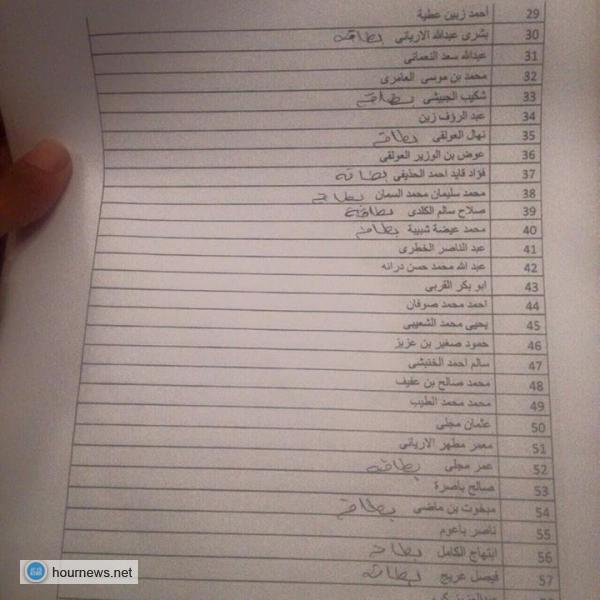 29 أحمد زبين عطية
30 بشرى عبدالله الارياني بطاقة
31 عبدالله سعد النعماني
32 محمد بن موسى العامري
33 شكيب الجبيشي بطاقة
34 عبد الرؤف زين
35 نهال العولقي بطاقة
36 عوض بن الوزير العولقي
37 فؤاد قايد احمد الحذيفي بطاقة
38 محمد سليمان محمد السمان بطاقة
39 صلاح سالم الكلدي بطاقة
40 محمد عيضة شبيبة بطاقة
41 عبد الناصر الخطري
42 عبد الله محمد حسن درانه
43 ابو بكر القربي
44 احمد محمد صوفان
45 يحيى محمد الشعيبي
46 حمود صغير بن عزيز
47 سالم احمد الخنبشي
48 محمد صالح بن عفيف
49 محمد محمد الطيب
50 عثمان مجلي
51 معمر مطهر الارياني
52 عمر مجلي بطاقة
53 صالح باصرة
54 مبخوت بن ماضي بطاقة
55 ناصر باعوم
56 ابتهاج الكامل بطاقة
57 فيصل عريج بطاقة
hournews.net